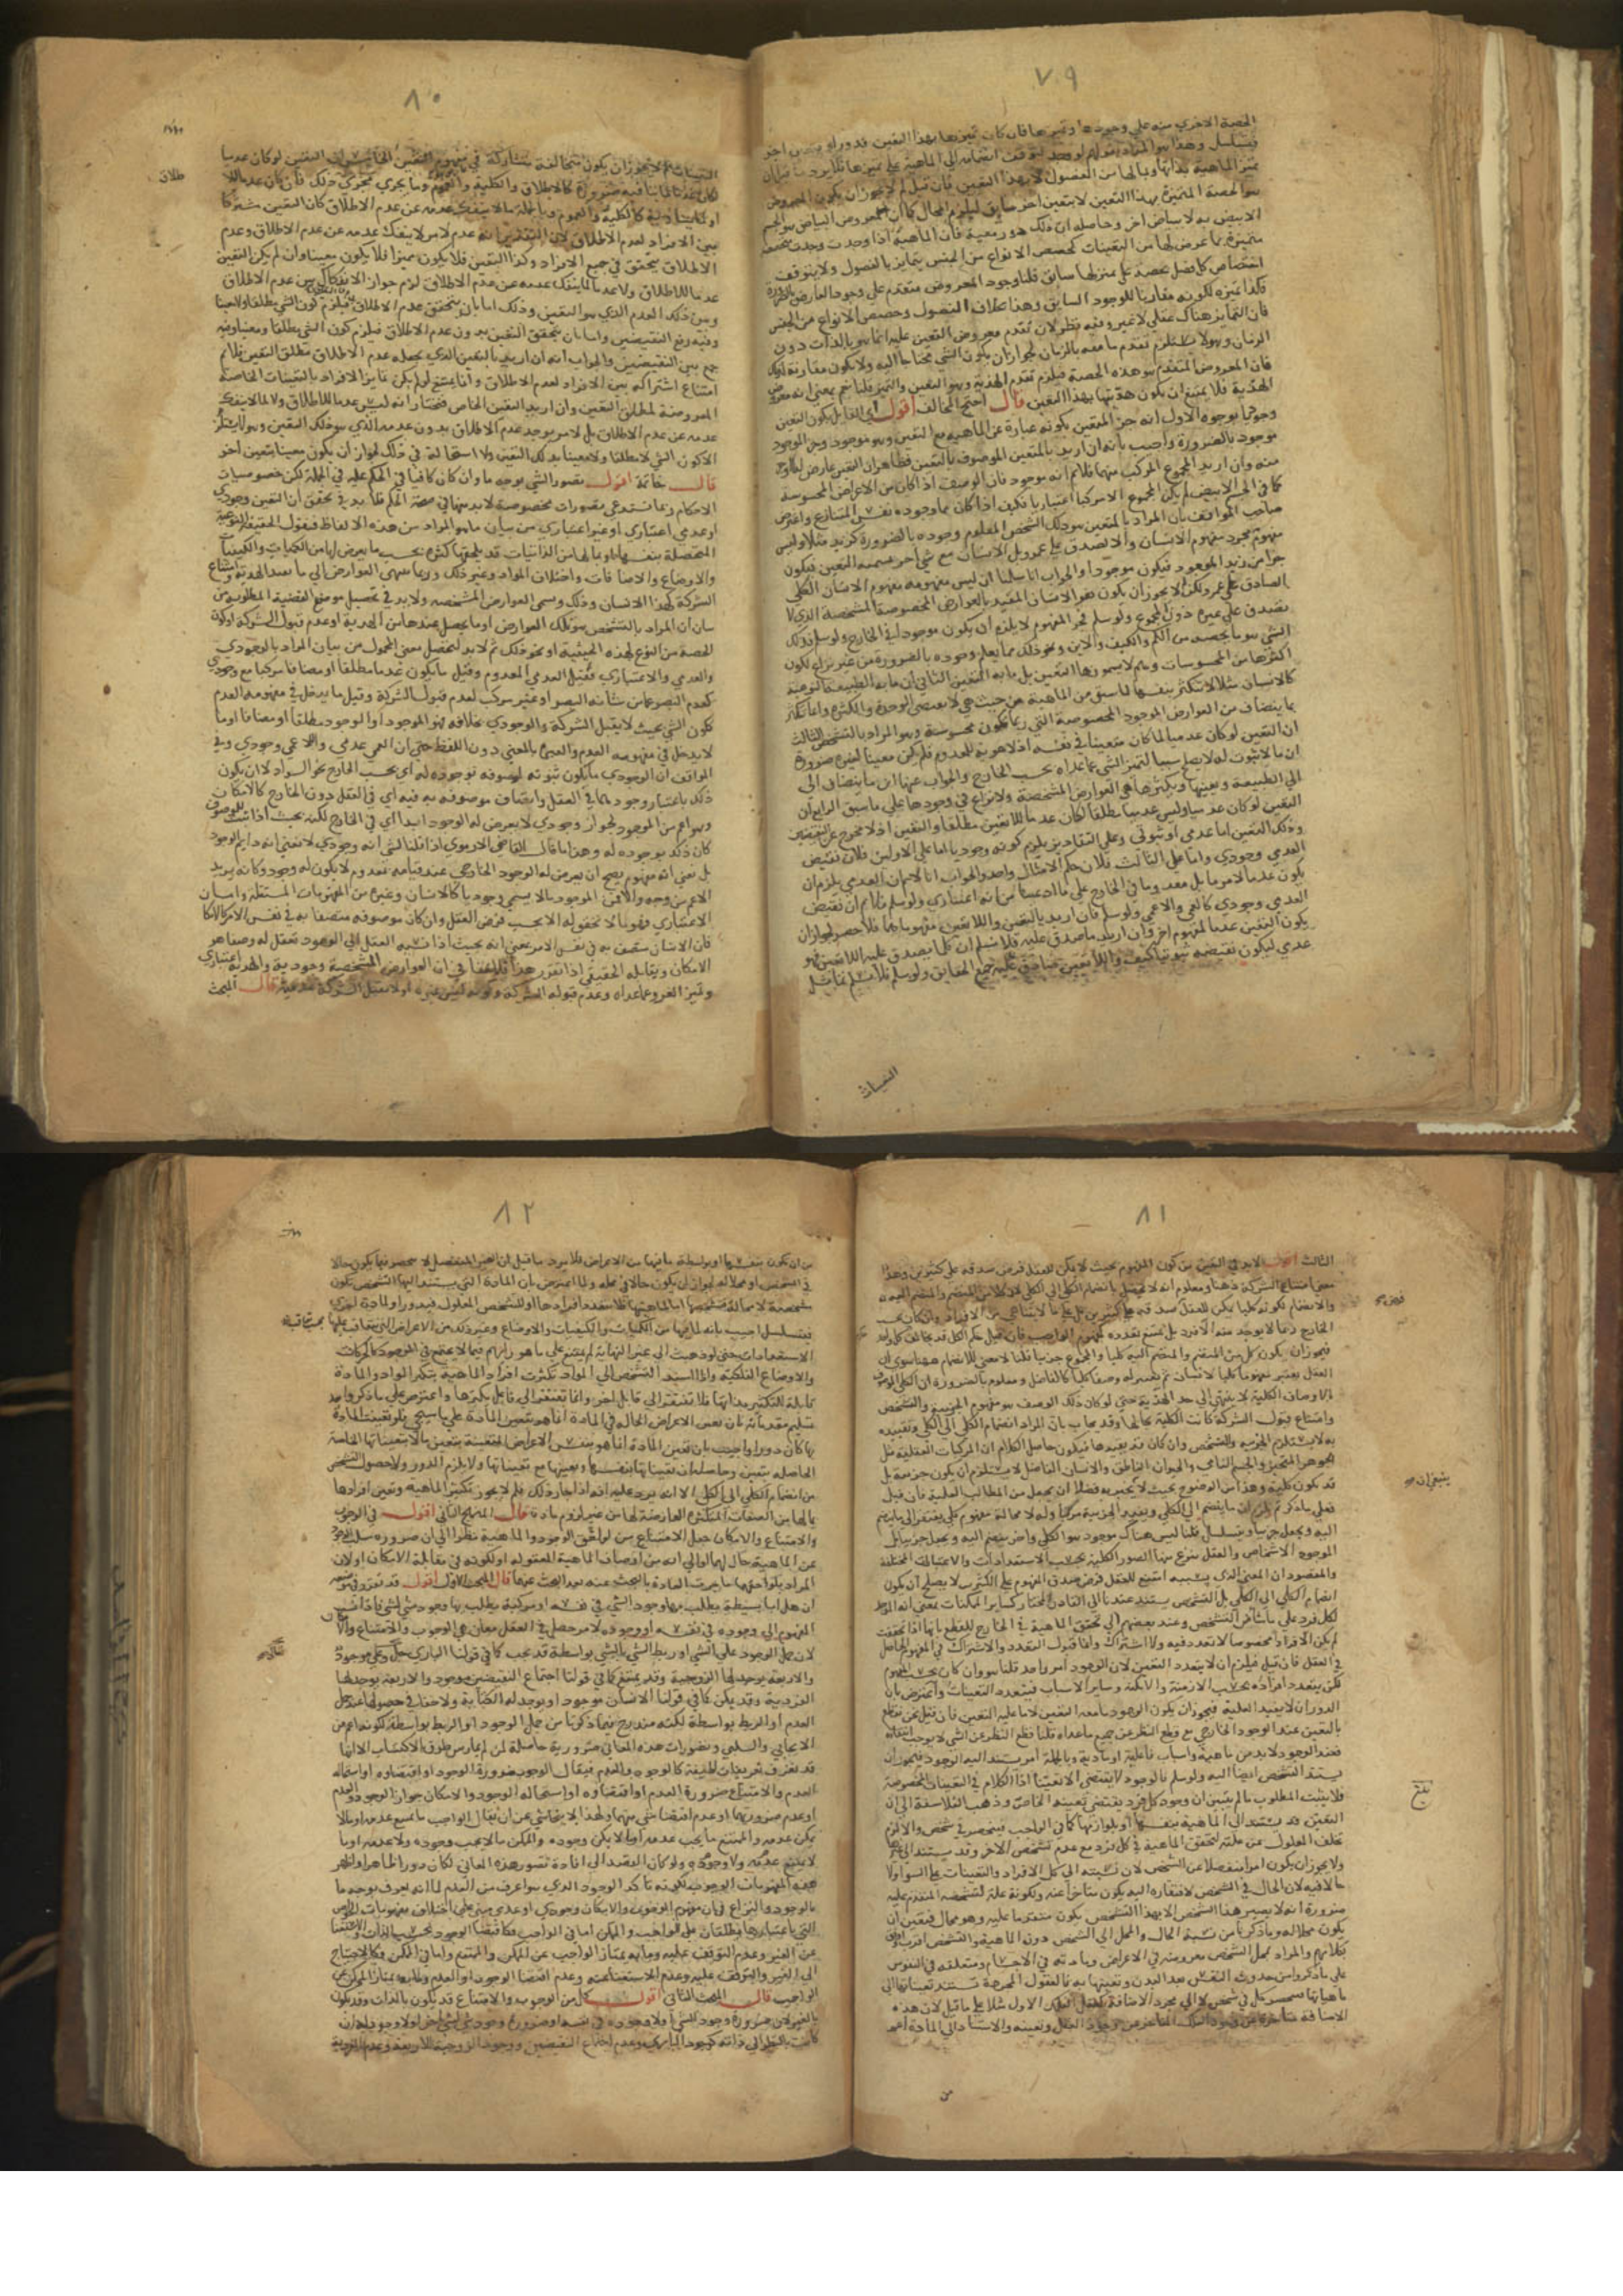 ٧٩
الحصة الاخرى منه على وجودها وتميزها فان كان تميزها بهذا التعين فدور او بتعين اخر
الابيض به لا ببياض اخر وحاصله ان ذلك دور معية فان الماهية اذا وجدت وجدت
متميزة بما عرض لها من التعينات كحصص الانواع من الجنس يتمايز بالفصول ولا يتوقف
اختصاص كل فصل بحصة على تميز لها سابق قلنا وجود المعروض متقدم على وجود العارض
فكذا تميزه لكونه مقارنا للوجود السابق وهذا بخلاف الفصول وحصص الانواع من الجنس
فان التمايز هناك عقلي لا غير وفيه نظر لان تقدم معروض التعين عليه انما هو بالذات دون
الزمان وهو لا يستلزم تقدم ما معه بالزمان لجواز ان يكون الشي محتاجا اليه ولا يكون مقارنه
الهذية فلا يمتنع ان يكون هذيتها بهذا التعين قال احتج المخالف اقول
وجوديا بوجوه الاول انه جزء المتعين لكونه عبارة عن الماهية مع التعين وهو موجود وجزء الموجود
موجود بالضرورة واجيب بانه ان اريد بالمتعين الموصوف بالتعين فظاهر ان التعين عارض له
منه وان اريد المجموع المركب منهما فلا نم انه موجود فان الوصف اذا كان من الاعراض المحسوسة
كما في الجسم الابيض لم يكن المجموع الا مركبا اعتباريا فكيف اذا كان مما وجوده نفس المتنازع واعترض
صاحب المواقف بان المراد بالمتعين هو ذلك الشخص المعلوم وجوده بالضرورة كزيد مثلا وليس
مفهومه مجرد مفهوم الانسان والا لصدق على عمرو بل الانسان مع شي اخر يسميه التعين فيكون
جزءا من زيد الموجود فيكون موجودا والجواب انا سلمنا ان ليس مفهومه مفهوم الانسان الكلي
الصادق على عمرو لكن لم لا يجوز ان يكون هو الانسان المقيد بالعوارض المخصوصة المشخصة الذي لا
يصدق على غيره دون المجموع ولو سلم فجزء المفهوم لا يلزم ان يكون موجودا في الخارج ولو سلم فذلك
الشي هو ما يخصه من الكم والكيف والاين ونحو ذلك مما يعلم وجوده بالضرورة من غير نزاع لكون
اكثرها من المحسوسات وهم لا يسمونها التعين بل ما به التعين الثاني ان ما به الطبيعة النوعية
كالانسان مثلا لا تتكثر بنفسها لما سبق من ان الماهية من حيث هي لا تقتضي الوحدة والكثرة وانما تتكثر
بما ينضاف من العوارض الموجودة المخصوصة التي ربما تكون محسوسة وهو المراد بالتشخص الثالث
ان التعين لو كان عدميا لما كان متعينا في نفسه اذ لا هوية للمعدوم فلم يكن معينا لغيره ضرورة
ان ما لا ثبوت له لا يصلح سببا لتميز الشي عما عداه بحسب الخارج والجواب عنهما ان ما ينضاف الى
الى الطبيعة وبعينها ويكثرها هي العوارض المشخصة ولا نزاع في وجودها على ما سبق الرابع ان
التعين لو كان عدميا وليس عدما مطلقا لكان عدما للاتعين مطلقا او لتعين اذ لا مخرج عن النقيضين
وذلك التعين اما عدمي او ثبوتي وعلى التقادير يلزم كونه وجوديا اما على الاولين فلان نقيض
العدمي وجودي واما على الثالث فلان حكم الامثال واحد والجواب انا لا نم ان العدمي يلزم ان
يكون عدما لامر ما بل معدوما في الخارج على ما ادعينا من انه اعتباري ولو سلم فلا نم ان نقيض
العدمي وجودي كالعمى واللاعمى ولو سلم فان اريد بالتعين واللاتعين مفهوماهما فلا حصر لجواز ان
يكون التعين عدما لمفهوم اخر وان اريد ما صدق عليه فلا نسلم ان كل ما يصدق عليه اللاتعين فهو
عدمي ليكون نقيضه ثبوتيا كيف واللاتعين صادق على جميع الحقايق ولو سلم فلا نسلم تماثل
التعينات
٨٠
طلاق
التعينات لم لا يجوز ان يكون متخالفة متشاركة في مفهوم التعين الخامس ان التعين لو كان عدميا
بين الافراد لعدم الاطلاق لان التقدير انه عدم لامر لا ينفك عدمه عن عدم الاطلاق وعدم
الاطلاق متحقق في جميع الافراد وكذا التعين فلا يكون مميزا فلا يكون معينا وان لم يكن التعين
عدما للاطلاق ولا عدما لما ينفك عدمه عن عدم الاطلاق لزم جواز الانفكاك بين عدم الاطلاق
وبين ذلك العدم الذي هو التعين وذلك اما بان يتحقق عدم الاطلاق فيلزم كون الشي لا مطلقا ولا معينا
وفيه رفع النقيضين واما بان يتحقق التعين بدون عدم الاطلاق فيلزم كون الشي مطلقا ومعينا وفيه
جمع بين النقيضين والجواب انه ان اريد بالتعين الذي يجعله عدم الاطلاق مطلق التعين فلا نم
امتناع اشتراكه بين الافراد لعدم الاطلاق وانما يمتنع لو لم يكن تمايز الافراد بالتعينات الخاصة
المعروضة لمطلق التعين وان اريد التعين الخاص فنختار انه ليس عدما للاطلاق ولا لما لا ينفك
عدمه عن عدم الاطلاق بل لامر يوجد عدم الاطلاق بدون عدمه الذي هو ذلك التعين وهو لا يستلزم
الا كون الشي لا مطلقا ولا معينا بذلك التعين ولا استحالة في ذلك لجواز ان يكون معينا بتعين اخر
قال خاتمة اقول تصور الشي بوجه ما وان كان كافيا في الحكم عليه في الجملة لكن خصوصيات
الاحكام ربما تستدعي تصورات مخصوصة لا بد منها في صحة الحكم فلا بد في تحقق ان التعين وجودي
او عدمي اعتباري او غير اعتباري من بيان ما هو المراد من هذه الالفاظ فنقول الحقيقة النوعية
المتحصلة بنفسها او بما لها من الذاتيات قد يلحقها كثرة بحسب ما يعرض لها من الكميات والكيفيات
والاوضاع والاضافات واختلاف المواد وغير ذلك وربما ينتهي العوارض الى ما يفيد الهذية وامتناع
الشركة كهذا الانسان وذلك ويسمى العوارض المشخصة ولا بد في تحصيل موضوع القضية المطلوبة من
بيان ان المراد بالتشخص هو تلك العوارض او ما يحصل عندها من الهذية او عدم قبول الشركة او كون
الحصة من النوع لهذه الحيثية او نحو ذلك ثم لا بد لتحصيل معنى المحمول من بيان المراد بالوجودي
والعدمي والاعتباري فقيل العدمي المعدوم وقيل ما يكون عدما مطلقا او مضافا مركبا مع وجودي
كعدم البصر عما من شانه البصر او غير مركب كعدم قبول الشركة وقيل ما يدخل في مفهومه العدم
ككون الشي بحيث لا يقبل الشركة والوجودي بخلافه فهو الموجود او الوجود مطلقا او مضافا او ما
لا يدخل في مفهومه العدم والعبرة بالمعنى دون اللفظ حتى ان العمى عدمي واللاعمى وجودي وفي
المواقف ان الوجودي ما يكون ثبوته لموصوفه بوجوده له اي بحسب الخارج نحو السواد لا ان يكون
ذلك باعتبار وجودهما في العقل واتصاف موصوفه به فيه اي في العقل دون الخارج كالامكان
وهو اعم من الموجود لجواز وجودي لا يعرض له الوجود ابدا اي في الخارج لكنه بحيث اذا ثبت للموصوف
كان ذلك بوجوده له وهذا ما قال القاضي الارموي اذا قلنا لشي انه وجودي لا نعني انه دايم الوجود
بل نعني انه مفهوم يصح ان يعرض له الوجود الخارجي عند قيامه بمعدوم لا يكون له وجود وكانه يريد
الاعم من وجه والا فمن الموجود ما لا يسمى وجوديا كالانسان وغيره من المفهومات المستقلة واما
الاعتباري فهو ما لا تحقق له الا بحسب فرض العقل وان كان موصوفه متصفا به في نفس الامر كالامكان
فان الانسان متصف به في نفس الامر بمعنى انه بحيث اذا نسبه العقل الى الوجود تعقل له وصفا هو
الامكان ويقابله الحقيقي اذا تقرر هذا فلا خفا في ان العوارض المشخصة وجودية والهذية اعتباري
وتميز الفرد عما عداه وعدم قبوله الشركة وكونه ليس غيره او لا يقبل الشركة عدمية قال المبحث
٨١
الثالث اقول لا بد في التعين من كون المفهوم بحيث لا يمكن للعقل فرض صدقه على كثيرين وهذا
معنى امتناع الشركة ذهنا ومعلوم انه لا يحصل بانضمام الكلي الى الكلي لان كلا من المنضم والمنضم اليه
والانضمام لكونه كليا يمكن للعقل صدقه على كثيرين بل على ما لا يتناهى من الافراد وان كان بحسب
الخارج ربما لا يوجد منه الا فرد بل يمتنع تعدده كمفهوم الواجب فان قيل حكم الكل قد يخالف كل واحد
فيجوز ان يكون كل من المنضم والمنضم اليه كليا والمجموع جزئيا قلنا لا معنى للانضمام ههنا سوى ان
العقل يعتبر مفهوما كليا كالانسان ثم يعتبر له وصفا كليا كالفاضل ومعلوم بالضرورة ان الكلي الموصوف
بالاوصاف الكلية لا ينتهي الى حد الهذية حتى لو كان ذلك الوصف هو مفهوم الجزئية والتشخص
وامتناع قبول الشركة كانت الكلية بحالها وقد يجاب بان المراد ان انضمام الكلي الى الكلي وتقييده
به لا يستلزم الجزئية والتشخص وان كان قد يفيدها فيكون حاصل الكلام ان المركبات العقلية مثل
الجوهر المتحيز والجسم النامي والحيوان الناطق والانسان الفاضل لا يستلزم ان يكون جزئية بل
قد يكون كلية وهذا من الوضوح بحيث لا يخبر به فضلا ان يجعل من المطالب العلمية فان قيل
اليه ويجعل جزئيا ويتسلسل قلنا ليس هناك موجود هو الكلي واخر ينضم اليه ويجعل جزئيا بل
الموجود الاشخاص والعقل ينتزع منها الصور الكلية بحسب الاستعدادات والاعتبارات المختلفة
والمقصود ان المعنى الذي بسببه امتنع للعقل فرض صدق المفهوم على الكثيرين لا يصلح ان يكون
انضمام الكلي الى الكلي بل التشخص يستند عندنا الى القادر المختار كساير الممكنات بمعنى انه الموجد
لكل فرد على ما شا من التشخص وعند بعضهم الى تحقق الماهية في الخارج للقطع بانها اذا تحققت
لم يكن الا فردا مخصوصا لا تعدد فيه ولا اشتراك وانما قبول التعدد والاشتراك في المفهوم الحاصل
في العقل فان قيل فيلزم ان لا يتعدد التعين لان الوجود امر واحد قلنا هو وان كان بحسب المفهوم
لكن يتعدد افراده بحسب الازمنة والامكنة وساير الاسباب فيتعدد التعينات واعترض بان
الدوران لا يفيد العلية فيجوز ان يكون الوجود ما معه التعين لا ما به التعين فان قيل نحن نقطع
بالتعين عند الوجود الخارجي مع قطع النظر عن جميع ما عداه قلنا قطع النظر عن الشي لا يوجب انتفاه
فعند الوجود لا بد من ماهية واسباب فاعلية او مادية وبالجملة امر يستند اليه الوجود فيجوز ان
يستند التشخص ايضا اليه ولو سلم فالوجود لا يقتضي الا تعينا ما اذ الكلام في التعينات المخصوصة
فلا يثبت المطلوب ما لم يتبين ان وجود كل فرد يقتضي تعينه الخاص وذهب الفلاسفة الى ان
التعين قد يستند الى الماهية بنفسها او بلوازمها كما في الواجب فينحصر في شخص والا لزم
تخلف المعلول عن علته لتحقق الماهية في كل فرد مع عدم تشخص الاخر وقد يستند الى غيرها
ولا يجوز ان يكون امرا منفصلا عن الشخص لان نسبته الى كل الافراد والتعينات على السوا ولا
حالا فيه لان الحال في الشخص لافتقاره اليه يكون متاخرا عنه ولكونه علة لتشخصه المتقدم عليه
ضرورة انه لا يصير هذا الشخص الا بهذا التشخص يكون متقدما عليه وهو محال فتعين ان
يكون محلا له وما ذكرنا من نسبة الحال والمحل الى الشخص دون الماهية والتشخص اقرب
بكلامهم والمراد بمحل الشخص معروضه في الاعراض ومادته في الاجسام ومتعلقه في النفوس
على ما ذكروا من حدوث النفس بعد البدن وتعينها به فالعقول المجردة تستند تعيناتها الى
ماهياتها فينحصر كل في شخص لا الى مجرد الاضافة كالعقل الفلك الاول مثلا على ما قيل لان هذه
الاضافة متاخرة عن وجود الفلك المتاخر عن وجود العقل وتعينه والاستناد الى المادة اعم
من
٨٢
من ان يكون بنفسها او بواسطة ما فيها من الاعراض فلا يرد ما قيل ان الغير المنفصل لا ينحصر فيما يكون حالا
في التشخص او محلا له لجواز ان يكون حالا في محله ولما اعترض بان المادة التي يستند اليها التشخص يكون
متشخصة لا محالة فتشخصها اما لماهيتها فلا يتعدد افرادها او للتشخص المعلول فيدور او لمادة اخرى
فيتسلسل اجيب بانه لما فيها من الكميات والكيفيات والاوضاع وغير ذلك من الاعراض التي يتعاقب عليها بحسب تعاقب
الاستعدادات حتى لو ذهبت الى غير النهاية لم يمتنع على ما هو رايهم فيما لا يجتمع في الوجود كالحركات
والاوضاع الفلكية واذا استند التشخص الى المواد تكثرت افراد الماهية بتكثر المواد والمادة
قابلة للتكثر بذاتها فلا تفتقر الى قابل اخر وانما تفتقر الى فاعل يكثرها واعترض على ما ذكروا بعد
تسليم مقدماته بان تعين الاعراض الحالة في المادة انما هو بتعين المادة على ما سيجي فلو تعينت المادة
بها كان دورا واجيب بان تعين المادة انما هو بنفس الاعراض المعينة بتعين ما لا بتعيناتها الخاصة
الحاصلة بتعين وحاصله ان تعيناتها بنفسها وتعينها مع تعيناتها ولا يلزم الدور ولا حصول التشخص
من انضمام الكلي الى الكلي الا انه يرد عليه انه اذا جاز ذلك فلم لا يجوز تكثر الماهية وتعين افرادها
بما لها من الصفات المتكثرة العارضة لها من غير لزوم مادة قال المنهج الثاني اقول في الوجوب
والامتناع والامكان جعل الامتناع من لواحق الوجود والماهية نظرا الى ان ضرورة سلب الوجود
عن الماهية حال لهما او الى انه من اوصاف الماهية المعقولة او لكونه في مقابلة الامكان او لان
المراد بلواحقهما ما جرت العادة بالبحث عنه بعد البحث عنهما قال المبحث الاول اقول قد تقرر في موضعه
ان هل اما بسيطة يطلب بها وجود الشي في نفسه او مركبة يطلب بها وجود شي لشي فاذا نسب
المفهوم الى وجوده في نفسه او وجوده لامر حصل في العقل معان هي الوجوب والامتناع والامكان
لان حمل الوجود على الشي او ربط الشي بالشي بواسطة قد يجب كما في قولنا الباري موجود
والاربعة يوجد لها الزوجية وقد يمتنع كما في قولنا اجتماع النقيضين موجود والاربعة يوجد لها
الفردية وقد يمكن كما في قولنا الانسان موجود او يوجد له الكتابة ولا خفا في حصولها عند حمل
العدم او الربط بواسطة لكنه مندرج فيما ذكرنا من حمل الوجود او الربط بواسطة لكونه اعم من
الايجابي والسلبي وتصورات هذه المعاني ضرورية حاصلة لمن لم يمارس طرق الاكتساب الا انها
قد تعرف تعريفات لفظية كالوجود والعدم فيقال الوجوب ضرورة الوجود او اقتضاوه او استحالة
العدم والامتناع ضرورة العدم او اقتضاوه او استحالة الوجود والامكان جواز الوجود والعدم
او عدم ضرورتهما او عدم اقتضا شي منهما ولهذا لا يتحاشى عن ان يقال الواجب ما يمتنع عدمه او ما لا
يمكن عدمه والممتنع ما يجب عدمه او ما لا يمكن وجوده والممكن ما لا يجب وجوده ولا عدمه او ما
لا يمتنع عدمه ولا وجوده ولو كان القصد الى افادة تصور هذه المعاني لكان دورا ظاهرا واظهر
هذه المفهومات الوجوب لكونه تاكد الوجود الذي هو اعرف من العدم لما انه يعرف بوجه ما
بالوجود والنزاع في ان مفهوم الوجوب والامكان وجودي او عدمي مبني على اختلاف مفهومات الالفاظ
عن الغير وعدم التوقف عليه وما به يمتاز الواجب عن الممكن والممتنع واما في الممكن فكالاحتياج
الى الغير والتوقف عليه وعدم الاستغنا عنه وعدم اقتضا الوجود او العدم وما به يمتاز الممكن عن
الواجب قال المبحث الثاني اقول كل من الوجوب والامتناع قد يكون بالذات وقد يكون
بالغير لان ضرورة وجود الشي او لا وجوده في نفسه او ضرورة وجود شي لشي اخر او لا وجوده له ان
كانت بالنظر الى ذاته كوجود الباري وعدم اجتماع النقيضين ووجود الزوجية للاربعة وعدم الفردية